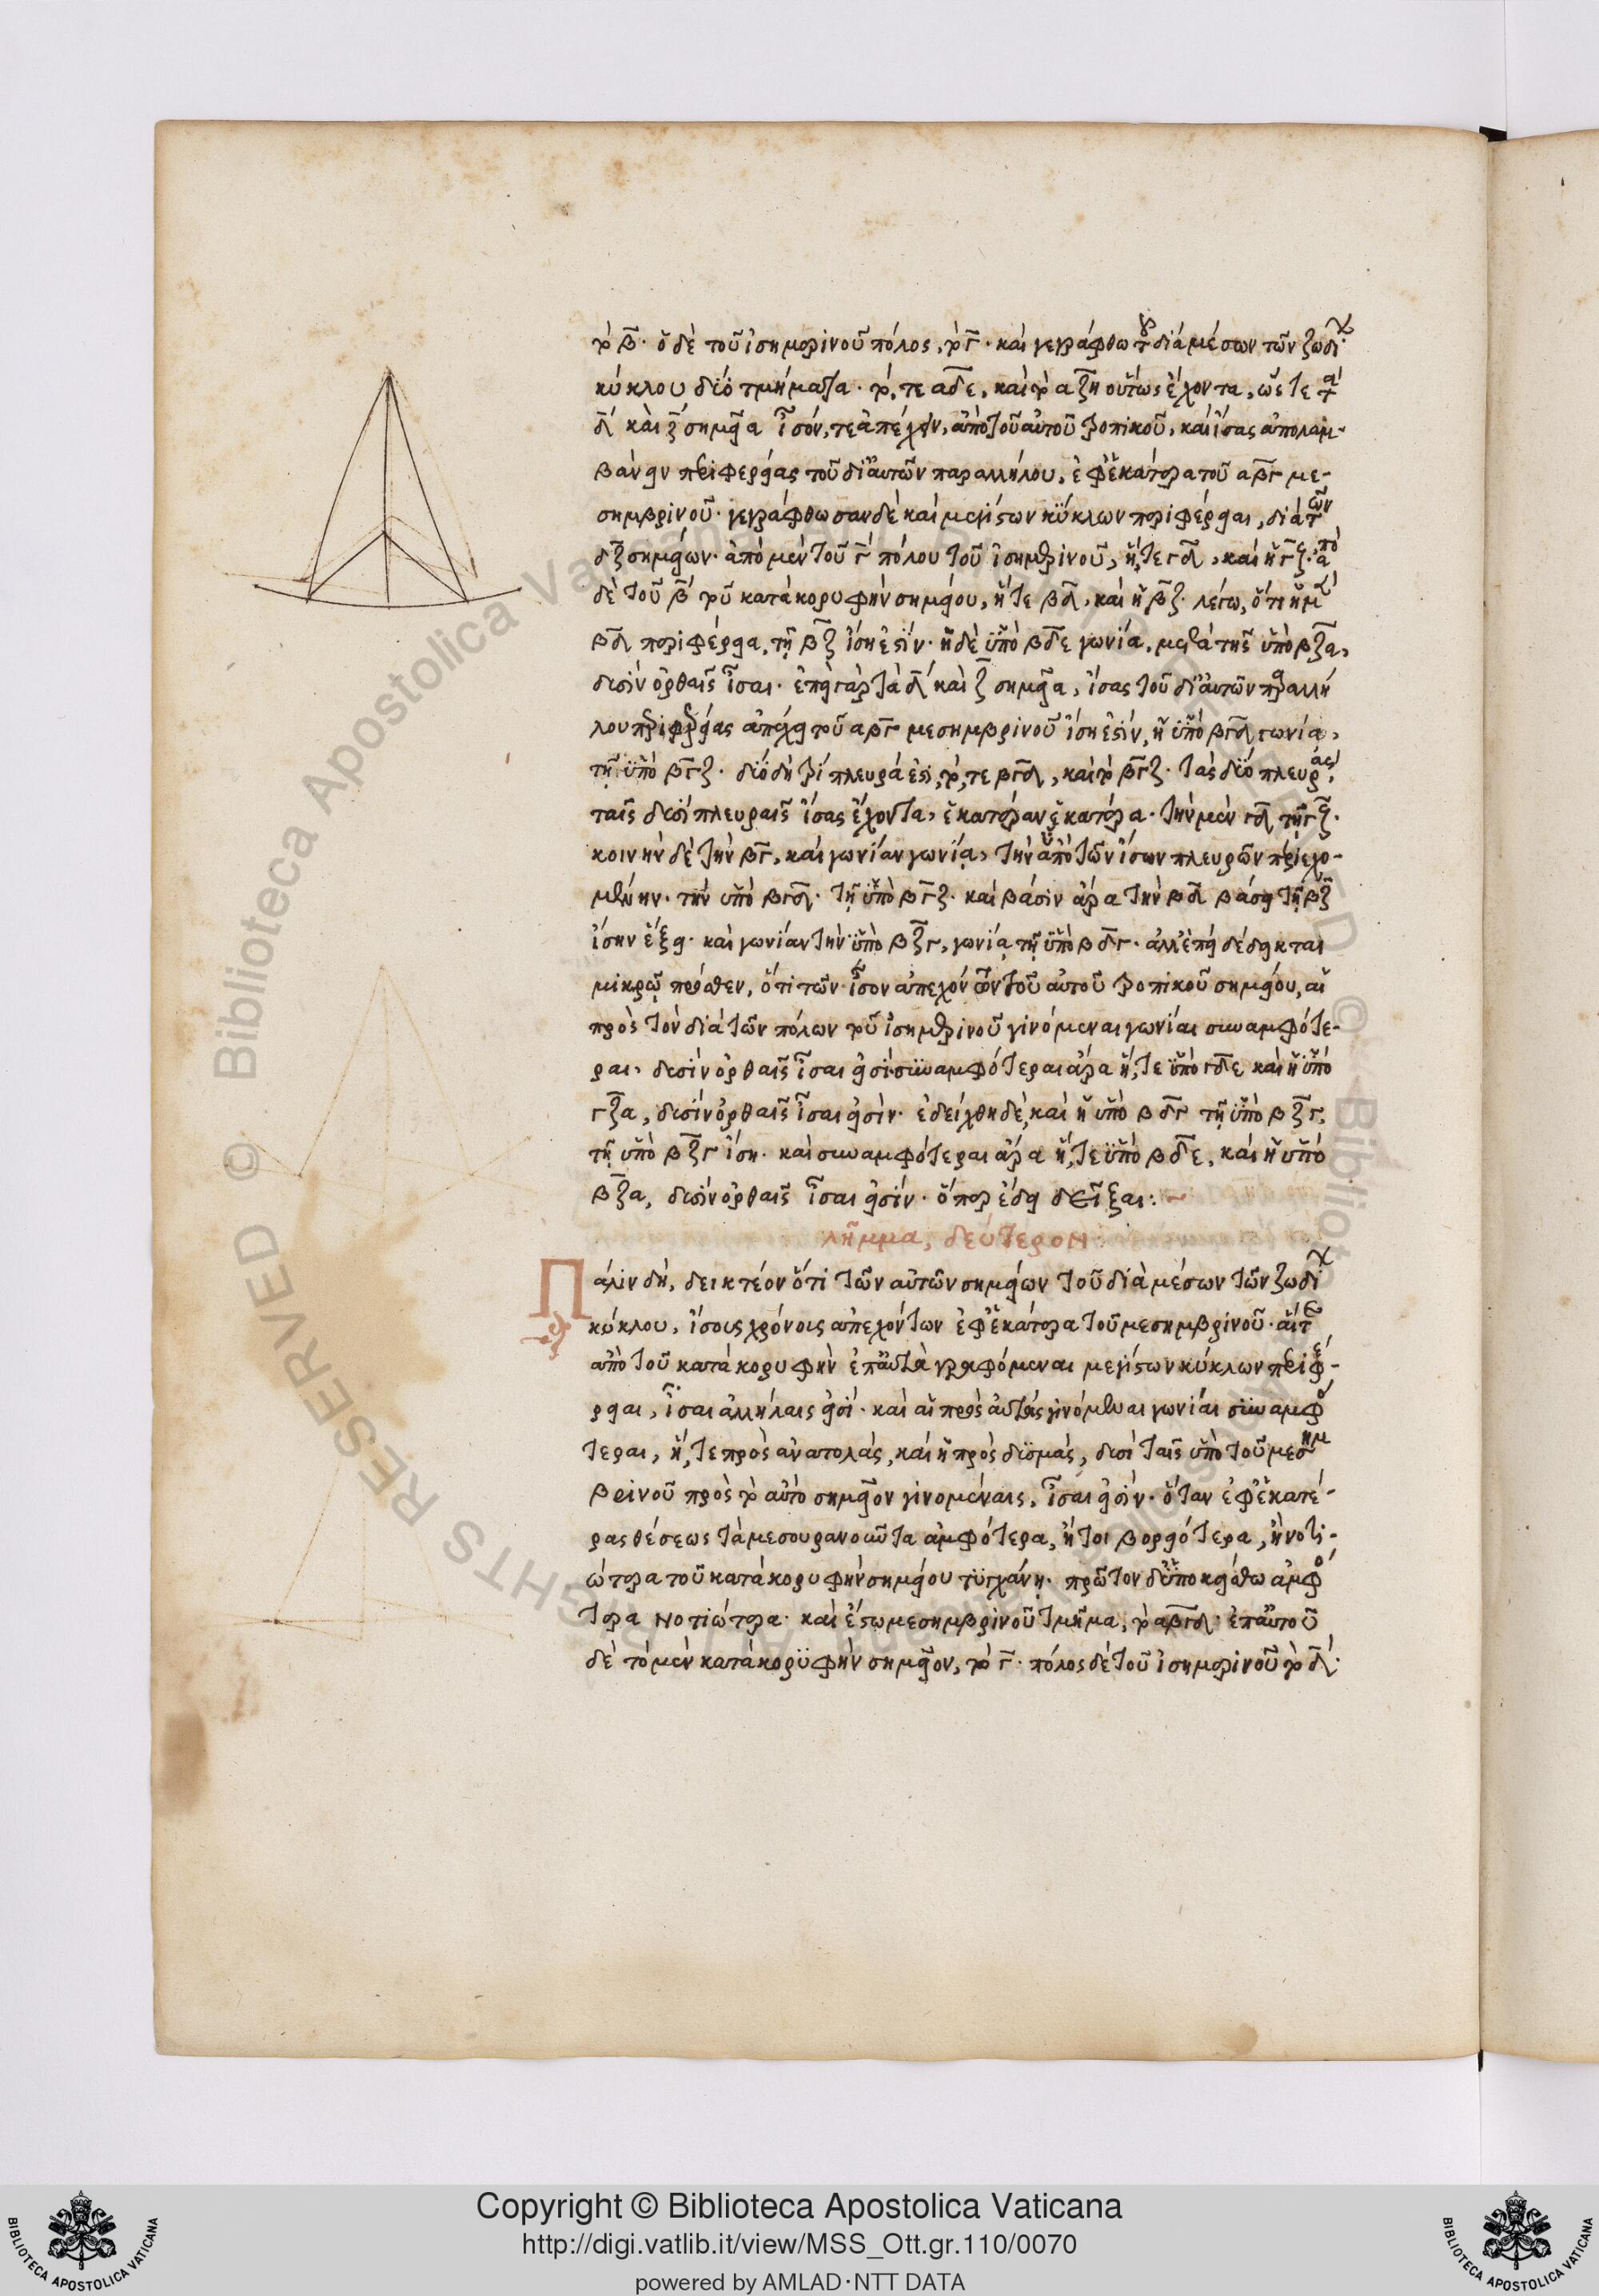 τὸ β̅· ὁ δὲ τοῦ ἰσημερινοῦ πόλος, τὸ γ̅· καὶ γεγράφθω τοῦ διὰ μέσων τῶν ζωδι
κύκλου δύο τμήματα· τό, τε α̅δ̅ε̅, καὶ τὸ α̅ζ̅η̅ οὕτως ἔχοντα, ὥστε τὰ
δ̅ καὶ ζ̅ σημεῖα ἴσόν, τε ἀπέχειν, ἀπὸ τοῦ αὐτοῦ τροπικοῦ, καὶ ἴσας ἀπολαμ-
βάνειν περιφερείας τοῦ δι αὐτῶν παραλλήλου, ἐφ ἑκάτερα τοῦ α̅β̅γ̅ με-
σημβρινοῦ· γεγράφθωσαν δὲ καὶ μεγίστων κύκλων περιφέρειαι, διὰ τῶν
δ̅ζ̅ σημείων· ἀπὸ μὲν τοῦ γ̅ πόλου τοῦ ἰσημερινοῦ, ἥ, τε γ̅δ̅, καὶ ἡ γ̅ζ̅· ἀπὸ
δὲ τοῦ β̅ τοῦ κατὰ κορυφὴν σημείου, ἥ τε β̅δ̅, καὶ ἡ β̅ζ̅· λέγω, ὅτι ἡ μὲν
β̅δ̅ περιφέρεια, τῇ β̅ζ̅ ἴση ἐστίν· ἡ δὲ ὑπὸ β̅δ̅ε̅ γωνία, μετὰ τῆς ὑπὸ β̅ζ̅α̅,
δυσὶν ὀρθαῖς ἴσαι· ἐπεὶ γὰρ τὰ δ̅ καὶ ζ̅ σημεῖα, ἴσας τοῦ δι αὐτῶν παραλλή
λου περιφερείας ἀπέχει τοῦ α̅β̅γ̅ μεσημβρινοῦ ἴση ἐστίν, ἡ ὑπὸ β̅γ̅δ̅ γωνία,
τῇ ὑπὸ β̅γ̅ζ̅· δύο δὴ τρίπλευρά ἐστι, τό, τε β̅γ̅δ̅, καὶ τὸ β̅γ̅ζ̅· τὰς δύο πλευράς,
ταῖς δυσὶ πλευραῖς ἴσας ἔχοντα, ἑκατέραν ἑκατέρα· τὴν μὲν γ̅δ̅ τῇ γ̅ζ̅·
κοινὴν δὲ τὴν β̅γ̅, καὶ γωνίαν γωνίᾳ, τὴν ὑπὸ τῶν ἴσων πλευρῶν περιεχο-
μένην· τὴν ὑπὸ β̅γ̅δ̅· τῇ ὑπὸ β̅γ̅ζ̅· καὶ βάσιν ἄρα τὴν β̅δ̅ βάσει τῇ β̅ζ̅
ἴσην ἕξει· καὶ γωνίαν τὴν ὑπὸ β̅ζ̅γ̅, γωνίᾳ τῇ ὑπὸ β̅δ̅γ̅· ἀλλ ἐπεὶ δέδεικται
μικρῷ πρόσθεν, ὅτι τῶν ἴσον ἀπεχόντων τοῦ αὐτοῦ τροπικοῦ σημείου, αἱ
πρὸς τὸν διὰ τῶν πόλων τοῦ ἰσημερινοῦ γινόμεναι γωνίαι συναμφότε-
ραι, δυσὶν ὀρθαῖς ἴσαι εἰσὶ· συναμφότεραι ἄρα ἥ, τε ὑπὸ γ̅δ̅ε̅ καὶ ἡ ὑπὸ
γ̅ζ̅α̅, δυσὶν ὀρθαῖς ἴσαι εἰσὶν· ἐδείχθη δὲ, καὶ ἡ ὑπὸ β̅δ̅γ̅ τῇ ὑπὸ β̅ζ̅γ̅,
τῇ ὑπὸ β̅ζ̅γ̅ ἴση· καὶ συναμφότεραι ἄρα ἥ, τε ὑπὸ β̅δ̅ε̅, καὶ ἡ ὑπὸ
β̅ζ̅α̅, δυσὶν ὀρθαῖς ἴσαι εἰσίν· ὅπερ ἔδει δεῖξαι: ~
λῆμμα, δεύτερον
Πάλιν δὴ, δεικτέον ὅτι τῶν αὐτῶν σημείων τοῦ διὰ μέσων τῶν ζωδι
κύκλου, ἴσους χρόνους ἀπεχόντων ἐφ ἑκάτερα τοῦ μεσημβρινοῦ· αἵ τε
ἀπὸ τοῦ κατὰ κορυφὴν ἐπ αὐτὰ γραφόμεναι μεγίστων κύκλων περιφέ-
ρειαι, ἴσαι ἀλλήλαις εἰσί· καὶ αἱ πρὸς αὐτὰς γινόμεναι γωνίαι συναμφό
τεραι, ἥ, τε πρὸς ἀνατολάς, καὶ ἡ πρὸς δυσμάς, δυσὶ ταῖς ὑπὸ τοῦ μεσημ
βρινοῦ πρὸς τὸ αὐτὸ σημεῖον γινομέναις, ἴσαι εἰσὶν· ὅταν ἐφ ἑκατέ-
ρας θέσεως τὰ μεσουρανοῦντα ἀμφότερα, ἤτοι βορειότερα, ἢ νοτι-
ώτερα τοῦ κατὰ κορυφὴν σημείου τυγχάνῃ· πρῶτον δ ὑποκείσθω ἀμφό
τερα νοτιώτερα· καὶ ἔστω μεσημβρινοῦ τμῆμα, τὸ α̅β̅γ̅δ̅· ἐπ αὐτοῦ
δὲ τὸ μὲν κατὰ κορυφὴν σημεῖον, τὸ γ̅· πόλος δὲ τοῦ ἰσημερινοῦ τὸ δ̅·
Copyright © Biblioteca Apostolica Vaticana
http://digi.vatlib.it/view/MSS_Ott.gr.110/0070
powered by AMLAD·NTT DATA